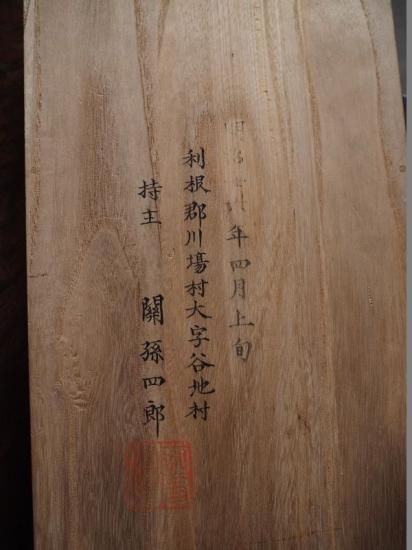 明治廿九年四月上旬
利根郡川塲村大字谷地村
持主 關孫四郎